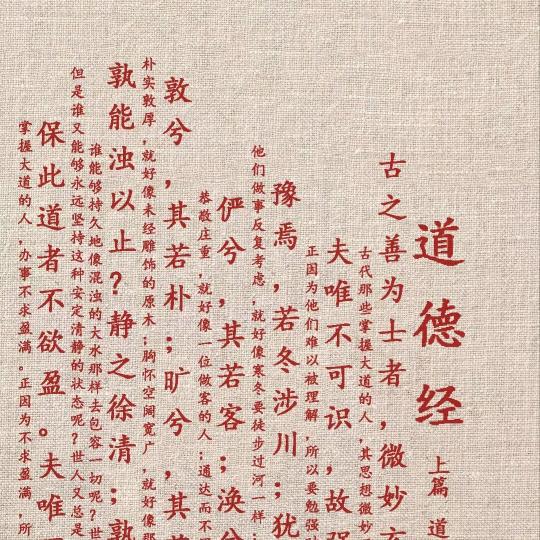 道德经
上篇 道
古之善为士者,微妙
古代那些掌握大道的人,其思想微妙
夫唯不可识,故强
正因为他们难以被理解,所以要勉强
豫焉,若冬涉川;犹
他们做事反复考虑,就好像寒冬要徒步过河一样;
俨兮,其若客;涣兮
恭敬庄重,就好像一位做客的人;通达而不
敦兮,其若朴;旷兮,其
朴实敦厚,就好像未经雕饰的原木;胸怀空阔宽广,就好像那
孰能浊以止?静之徐清;孰
谁能够持久地像混浊的大水那样去包容一切呢?世
但是谁又能够永远坚持这种安定清静的状态呢?世人又总是
保此道者不欲盈。夫唯
掌握大道的人,办事不求盈满。正因为不求盈满,所